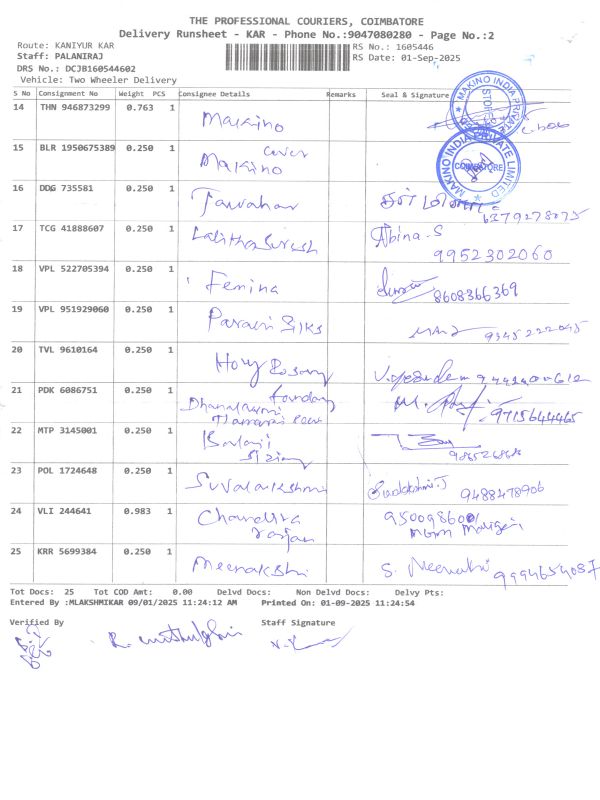 THE PROFESSIONAL COURIERS, COIMBATORE
Delivery Runsheet - KAR - Phone No.:9047080280 - Page No.:2
Route: KANIYUR KAR
RS No.: 1605446
Staff: PALANIRAJ
RS Date: 01-Sep-2025
DRS No.: DCJB160544602
Vehicle: Two Wheeler Delivery
S No Consignment No Weight PCS Consignee Details Remarks Seal & Signature
14 THN 946873299 0.763 1 Makino
MAKINO INDIA PRIVATE STORES
15 BLR 1950675389 0.250 1 cover Makino
MAKINO INDIA PRIVATE LIMITED COIMBATORE
16 DDG 735581 0.250 1 Jawahar 6379278075
17 TCG 41888607 0.250 1 Lalitha Suresh Albina-S 9952302060
18 VPL 522705394 0.250 1 Femina 8608366369
19 VPL 951929060 0.250 1
20 TVL 9610164 0.250 1 Holy Rosary
21 PDK 6086751 0.250 1 9715644465
22 MTP 3145001 0.250 1 Balaji
23 POL 1724648 0.250 1 Suvalakshmi 9488478906
24 VLI 244641 0.983 1 Chandra rajan
25 KRR 5699384 0.250 1 Meenakshi S. Meenakshi 9994654087
Tot Docs: 25 Tot COD Amt: 0.00 Delvd Docs: Non Delvd Docs: Delvy Pts:
Entered By :MLAKSHMIKAR 09/01/2025 11:24:12 AM Printed On: 01-09-2025 11:24:54
Verified By Staff Signature